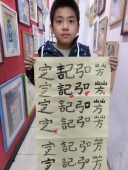 芳芳芳芳芳芳
弘弘弘弘弘弘
記記記記記記
定定定定定定